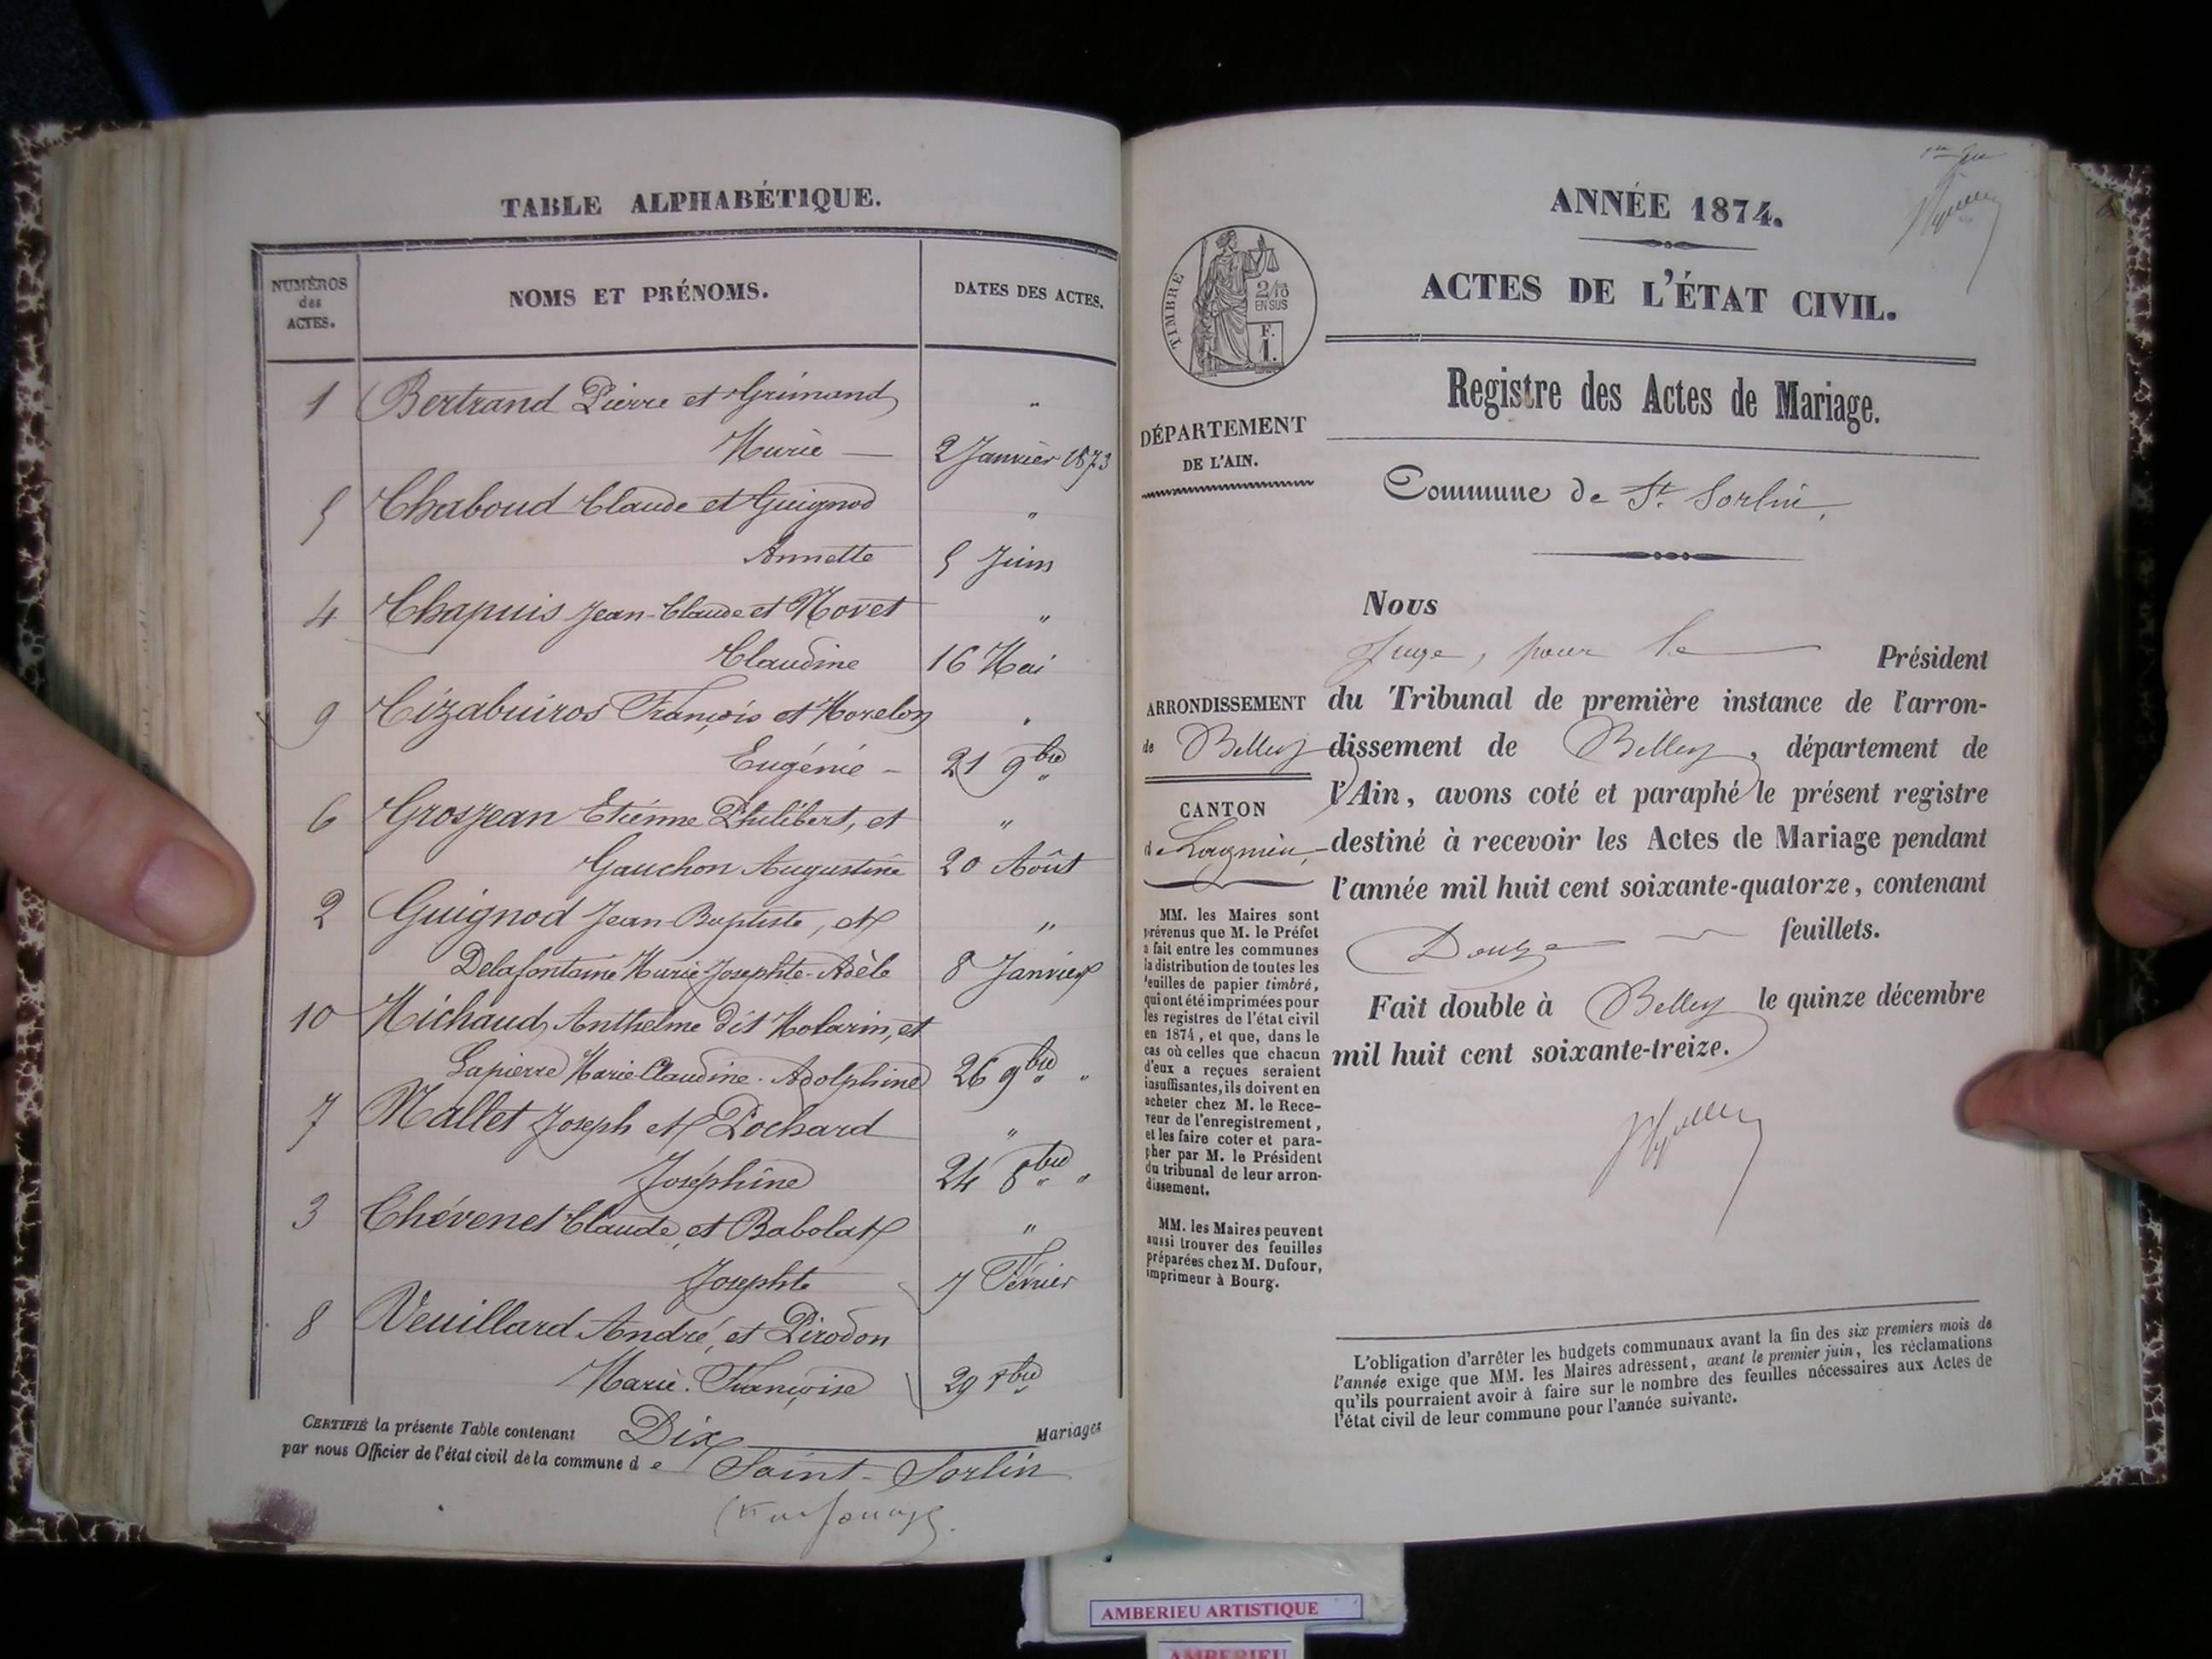 TABLE ALPHABÉTIQUE.
NUMÉROS des ACTES.
NOMS ET PRÉNOMS.
DATES DES ACTES.
1 Bertrand Pierre et Grimand "
Marie — 2 Janvier 1873
5 Chaboud Claude et Guignod "
Annette 5 Juin
4 Chapuis Jean-Claude et Novet "
Claudine 16 Mai
9 Cizabuiros François et Morelon "
Eugénie - 21 9bre "
6 Grosjean Etienne Philibert, et "
Gauchon Augustine 20 Août
2 Guignod Jean-Baptiste, et "
Delafontaine Marie Josephte-Adèle 8 Janvier
10 Michaud Anthelme dit Molarin, et
Lapierre Marie Claudine-Adolphine 26 9bre "
7 Mallet Joseph et Pochard "
Joséphine 24 8bre "
3 Thévenet Claude, et Babolat "
Josephte 7 Février
8 Veuillard André, et Pirodon
Marie-Françoise 29 8bre
CERTIFIÉ la présente Table contenant Dix Mariages
par nous Officier de l'état civil de la commune d e Saint-Sorlin
ANNÉE 1874.
ACTES DE L'ÉTAT CIVIL.
TIMBRE
2/10
EN SUS
F.
1.
Registre des Actes de Mariage.
DÉPARTEMENT
DE L'AIN.
Commune de St. Sorlin,
Nous
Juge, pour le Président
ARRONDISSEMENT
de Belley
CANTON
de Lagnieu,
du Tribunal de première instance de l'arron-
dissement de Belley, département de
l'Ain, avons coté et paraphé le présent registre
destiné à recevoir les Actes de Mariage pendant
l'année mil huit cent soixante-quatorze, contenant
Douze feuillets.
Fait double à Belley le quinze décembre
mil huit cent soixante-treize.
MM. les Maires sont
prévenus que M. le Préfet
a fait entre les communes
la distribution de toutes les
feuilles de papier timbré,
qui ont été imprimées pour
les registres de l'état civil
en 1874, et que, dans le
cas où celles que chacun
d'eux a reçues seraient
insuffisantes, ils doivent en
acheter chez M. le Rece-
veur de l'enregistrement,
et les faire coter et para-
pher par M. le Président
du tribunal de leur arron-
dissement.
MM. les Maires peuvent
aussi trouver des feuilles
préparées chez M. Dufour,
imprimeur à Bourg.
L'obligation d'arrêter les budgets communaux avant la fin des six premiers mois de
l'année exige que MM. les Maires adressent, avant le premier juin, les réclamations
qu'ils pourraient avoir à faire sur le nombre des feuilles nécessaires aux Actes de
l'état civil de leur commune pour l'année suivante.
AMBERIEU ARTISTIQUE
AMBERIEU